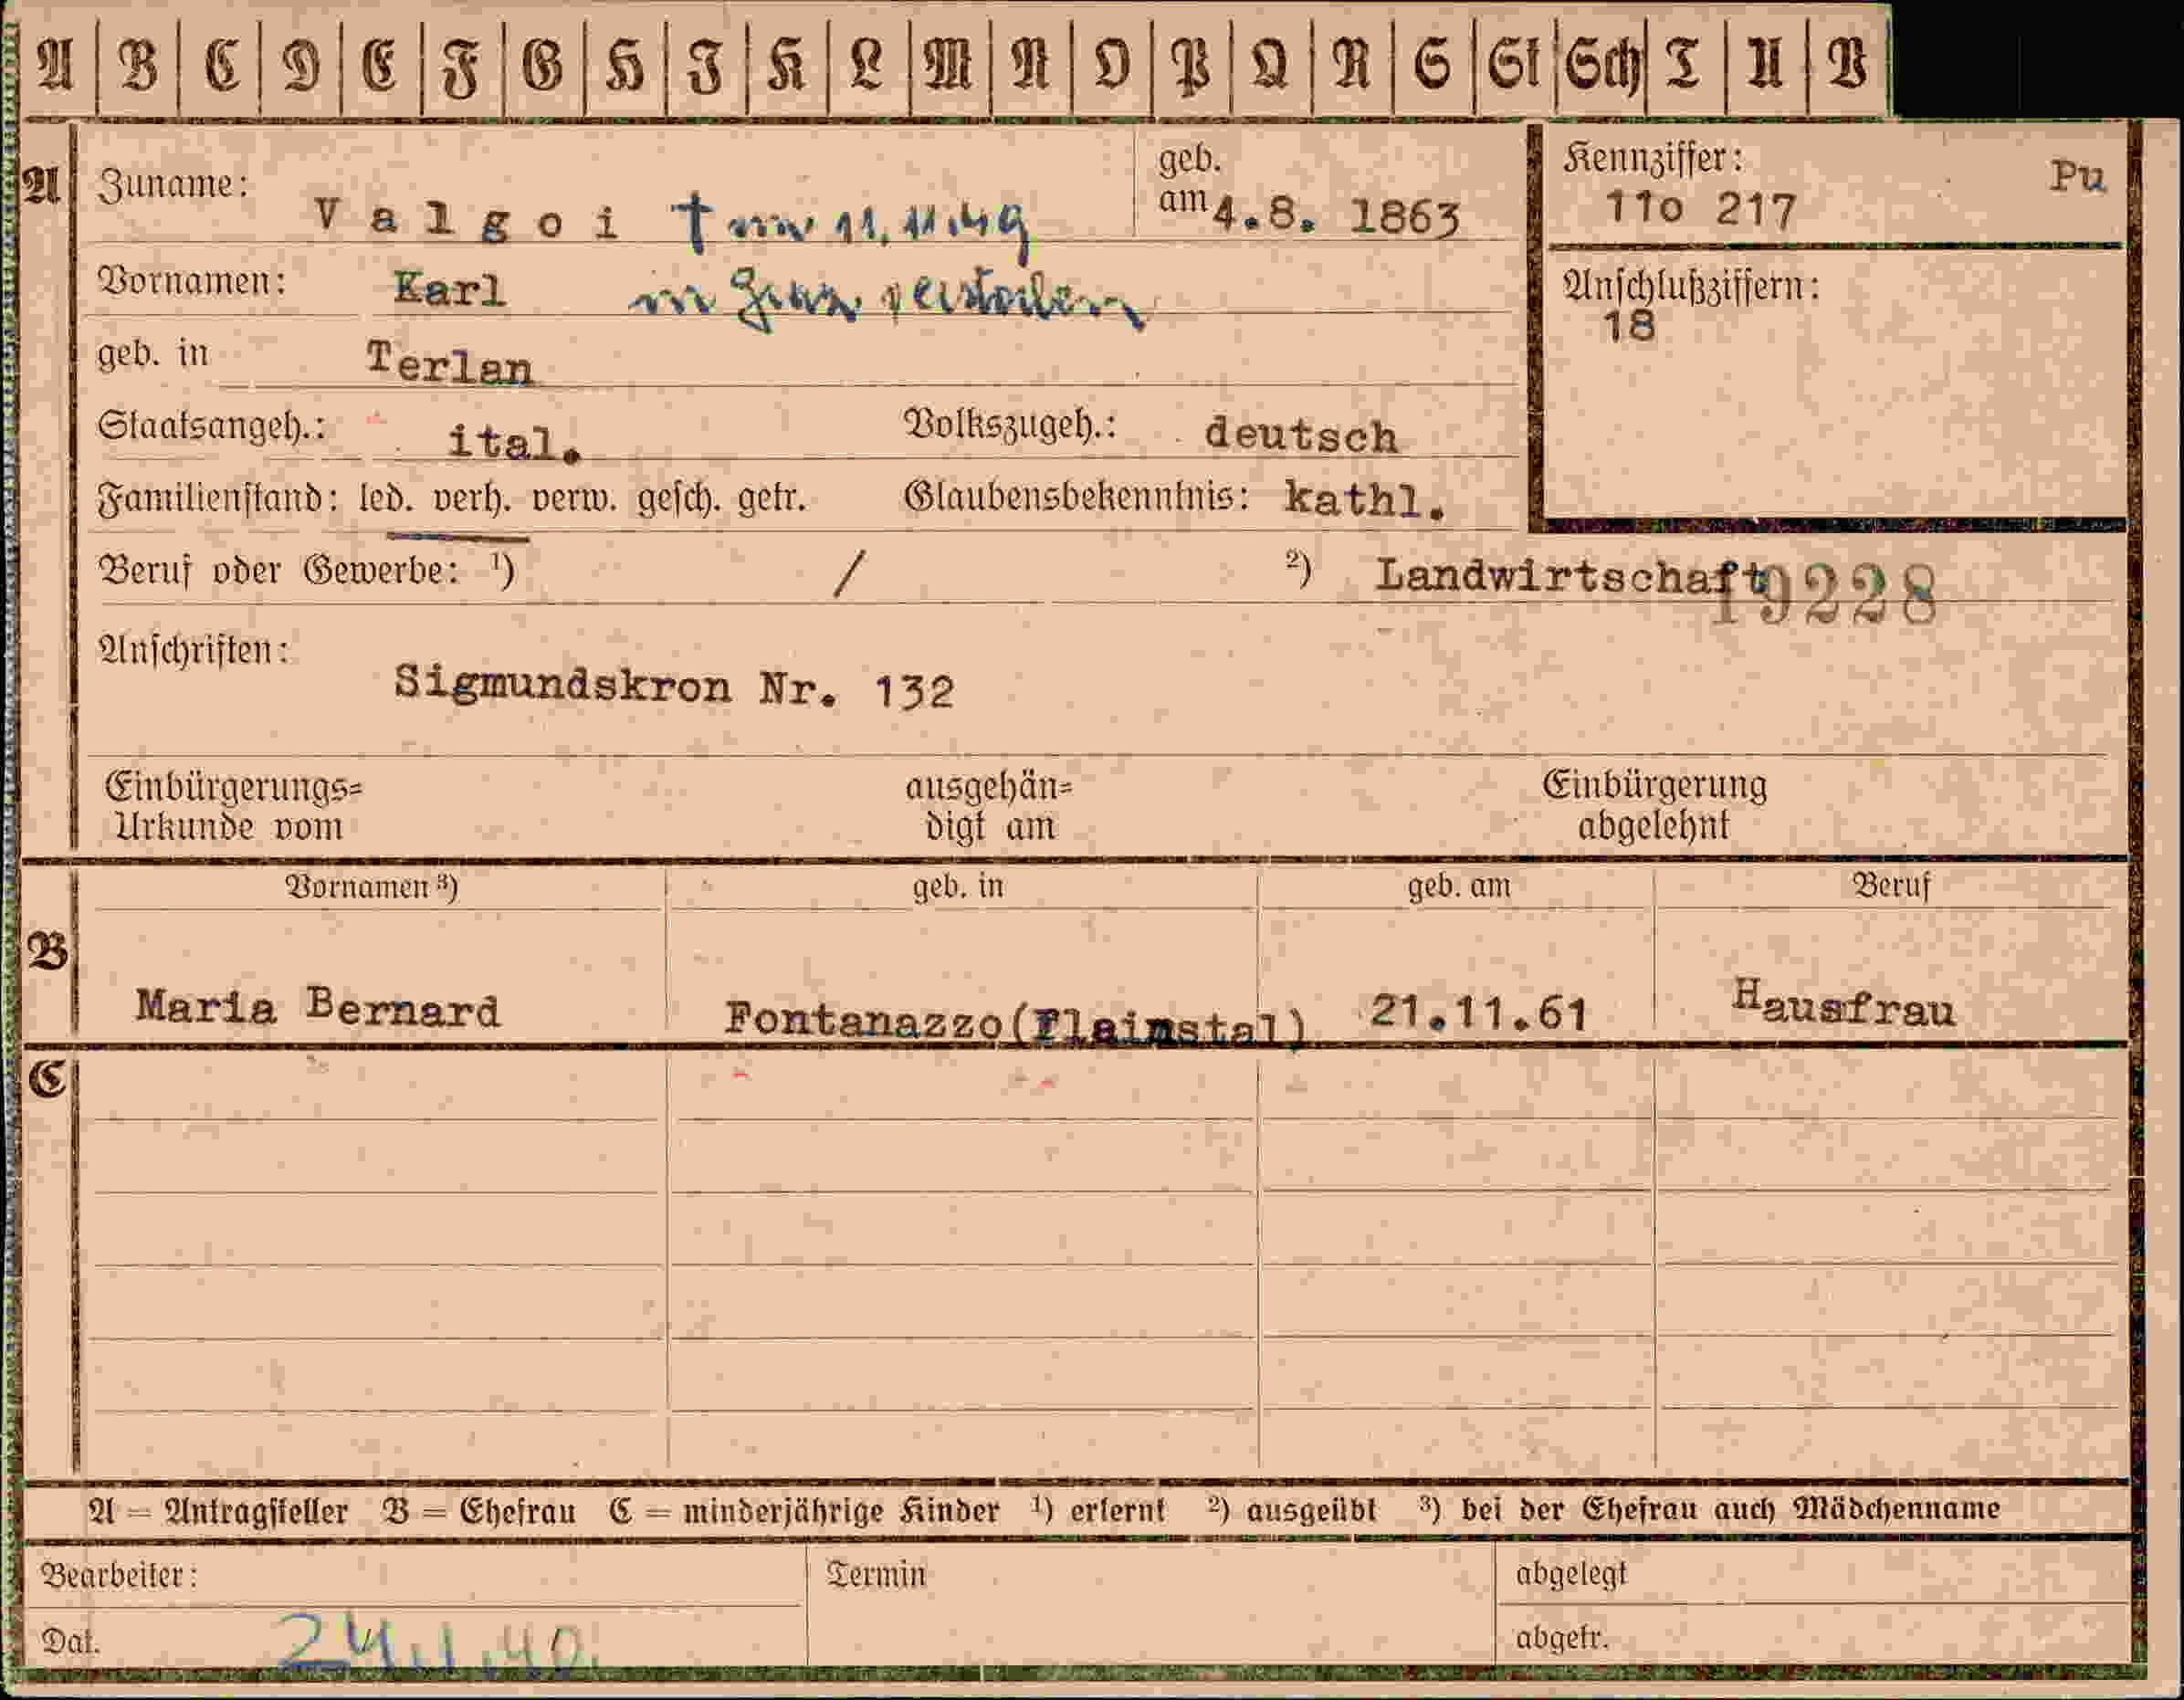 A B C D E F G H I K L M N O P Q R S St Sch T U V
A
Zuname: Valgoi † am 11.11.49
geb. am 4.8. 1863
Kennziffer: 11o 217
Pu
Vornamen: Karl in Graz verstorben
Anschlußziffern: 18
geb. in Terlan
Staatsangeh.: ital. Volkszugeh.: deutsch
Familienstand: led. verh. verw. gesch. getr. Glaubensbekenntnis: kathl.
Beruf oder Gewerbe: ¹) / ²) Landwirtschaft
19228
Anschriften:
Sigmundskron Nr. 132
Einbürgerungs= ausgehän= Einbürgerung
Urkunde vom digt am abgelehnt
Vornamen ³) geb. in geb. am Beruf
B
Maria Bernard Fontanazzo(Fleimstal) 21.11.61 Hausfrau
C
A = Antragsteller B = Ehefrau C = minderjährige Kinder ¹) erlernt ²) ausgeübt ³) bei der Ehefrau auch Mädchenname
Bearbeiter: Termin abgelegt
Dat. 24.1.40. abgetr.